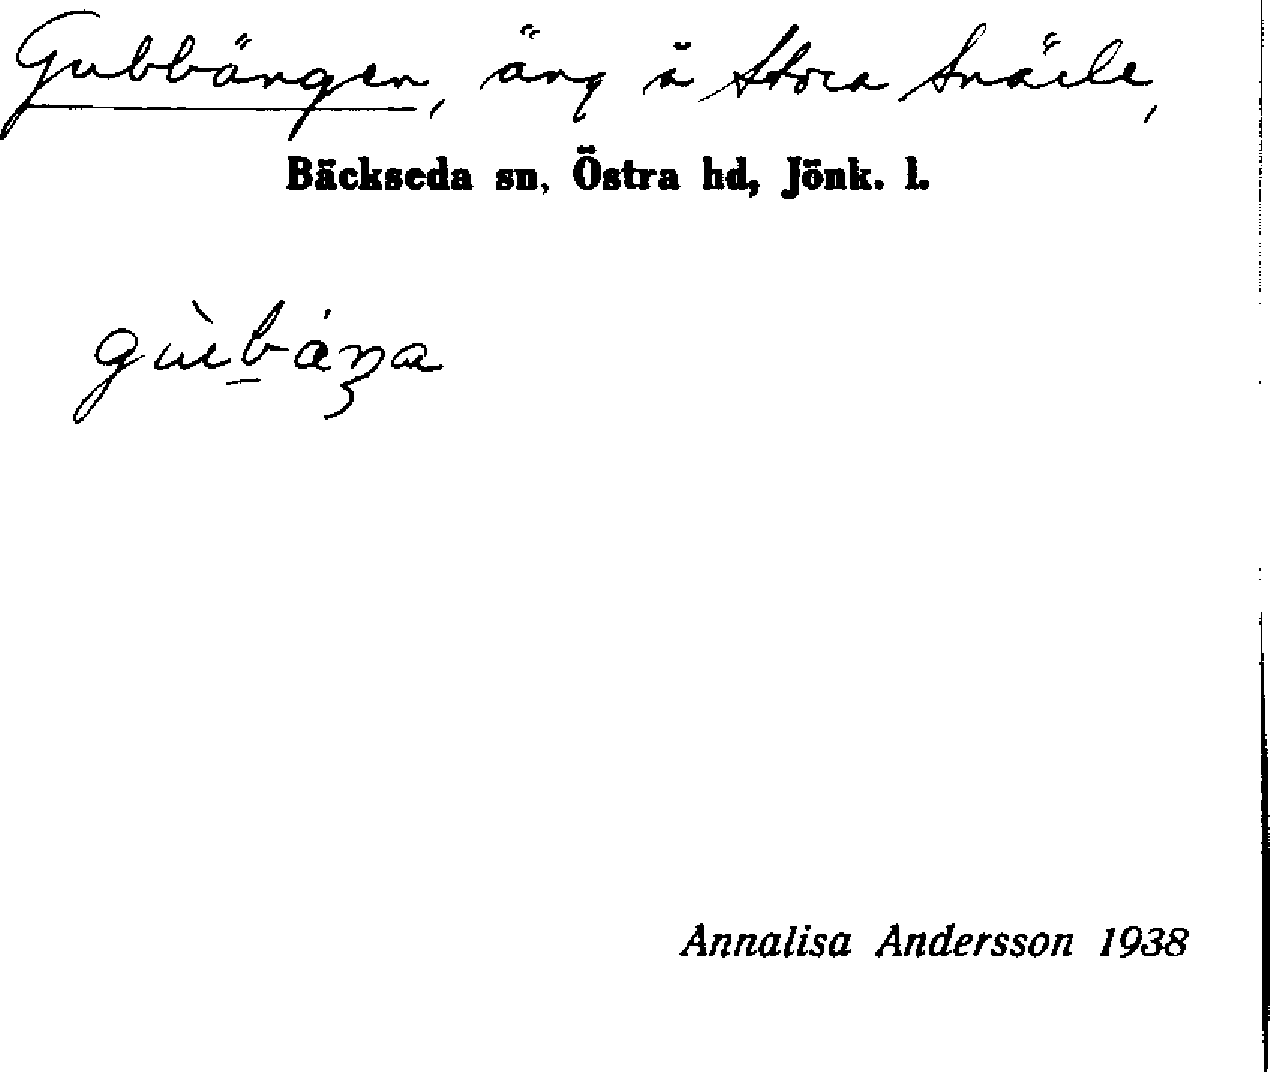 Gubbängen, äng å Stora Snärle,
Bäckseda sn, Östra hd, Jönk. l.
Annalisa Andersson 1938